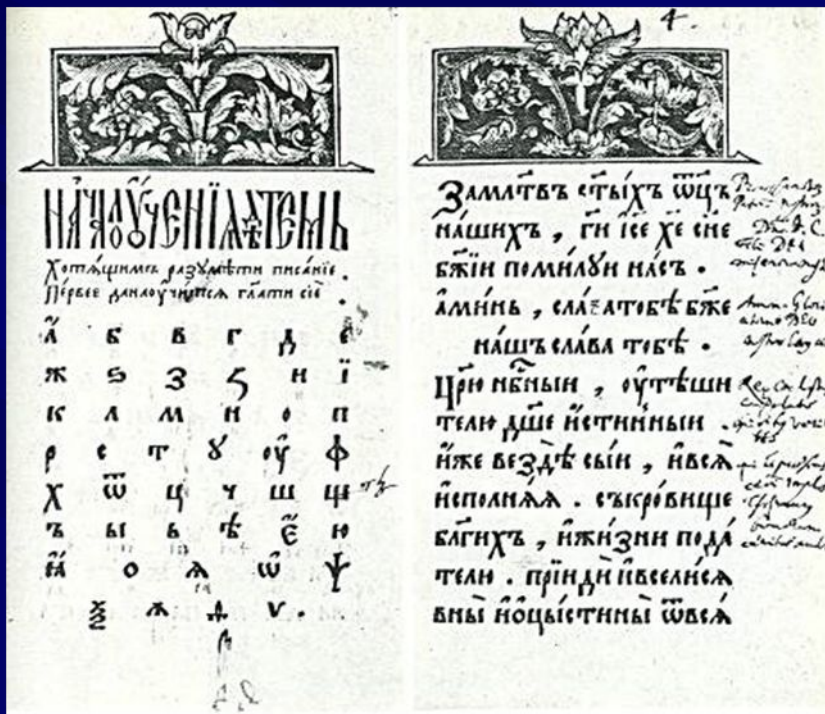 НАЧАЛО ОУЧЕНІѦ ДѢТЕМЪ
Хотѧщимсѧ разꙋмѣти писаніе .
Первее да наоучитсѧ гл҃ати сіѐ .
а̑ б в г д е
ж ѕ з ꙁ и ї
к л м н о п
р с т ꙋ оу̑ ф
х ѿ ц ч ш щ
ъ ы ь ѣ є̑ ю
ꙗ̑ о ѧ ѡ̑ ѱ
ѯ ѧ ѵ .
4.
За мл҃твъ ст҃ы́хъ ѿц҃ъ
на́шихъ , ги҃ іс҃е хе҃ сн҃е
бж҃іи помилꙋи на́съ .
а҆ми́нь , сла́ва тобѣ̀ бж҃е
на́шъ сла́ва тобѣ̀ .
Цр҃ю нб҃ныи , оу҆тѣ́ши
телю дш҃е и҆́стинныи .
и҆́же вездѣ̀ сыи , и҆всѧ̀
и҆сполнѧ́ѧ . съкро́вище
бл҃ги́хъ , и҆жи́зни пода́
телю . прїидѝ и҆всели́сѧ
вны̀ и҆ѡ҆цы́стины̀ ѿвсѧ́